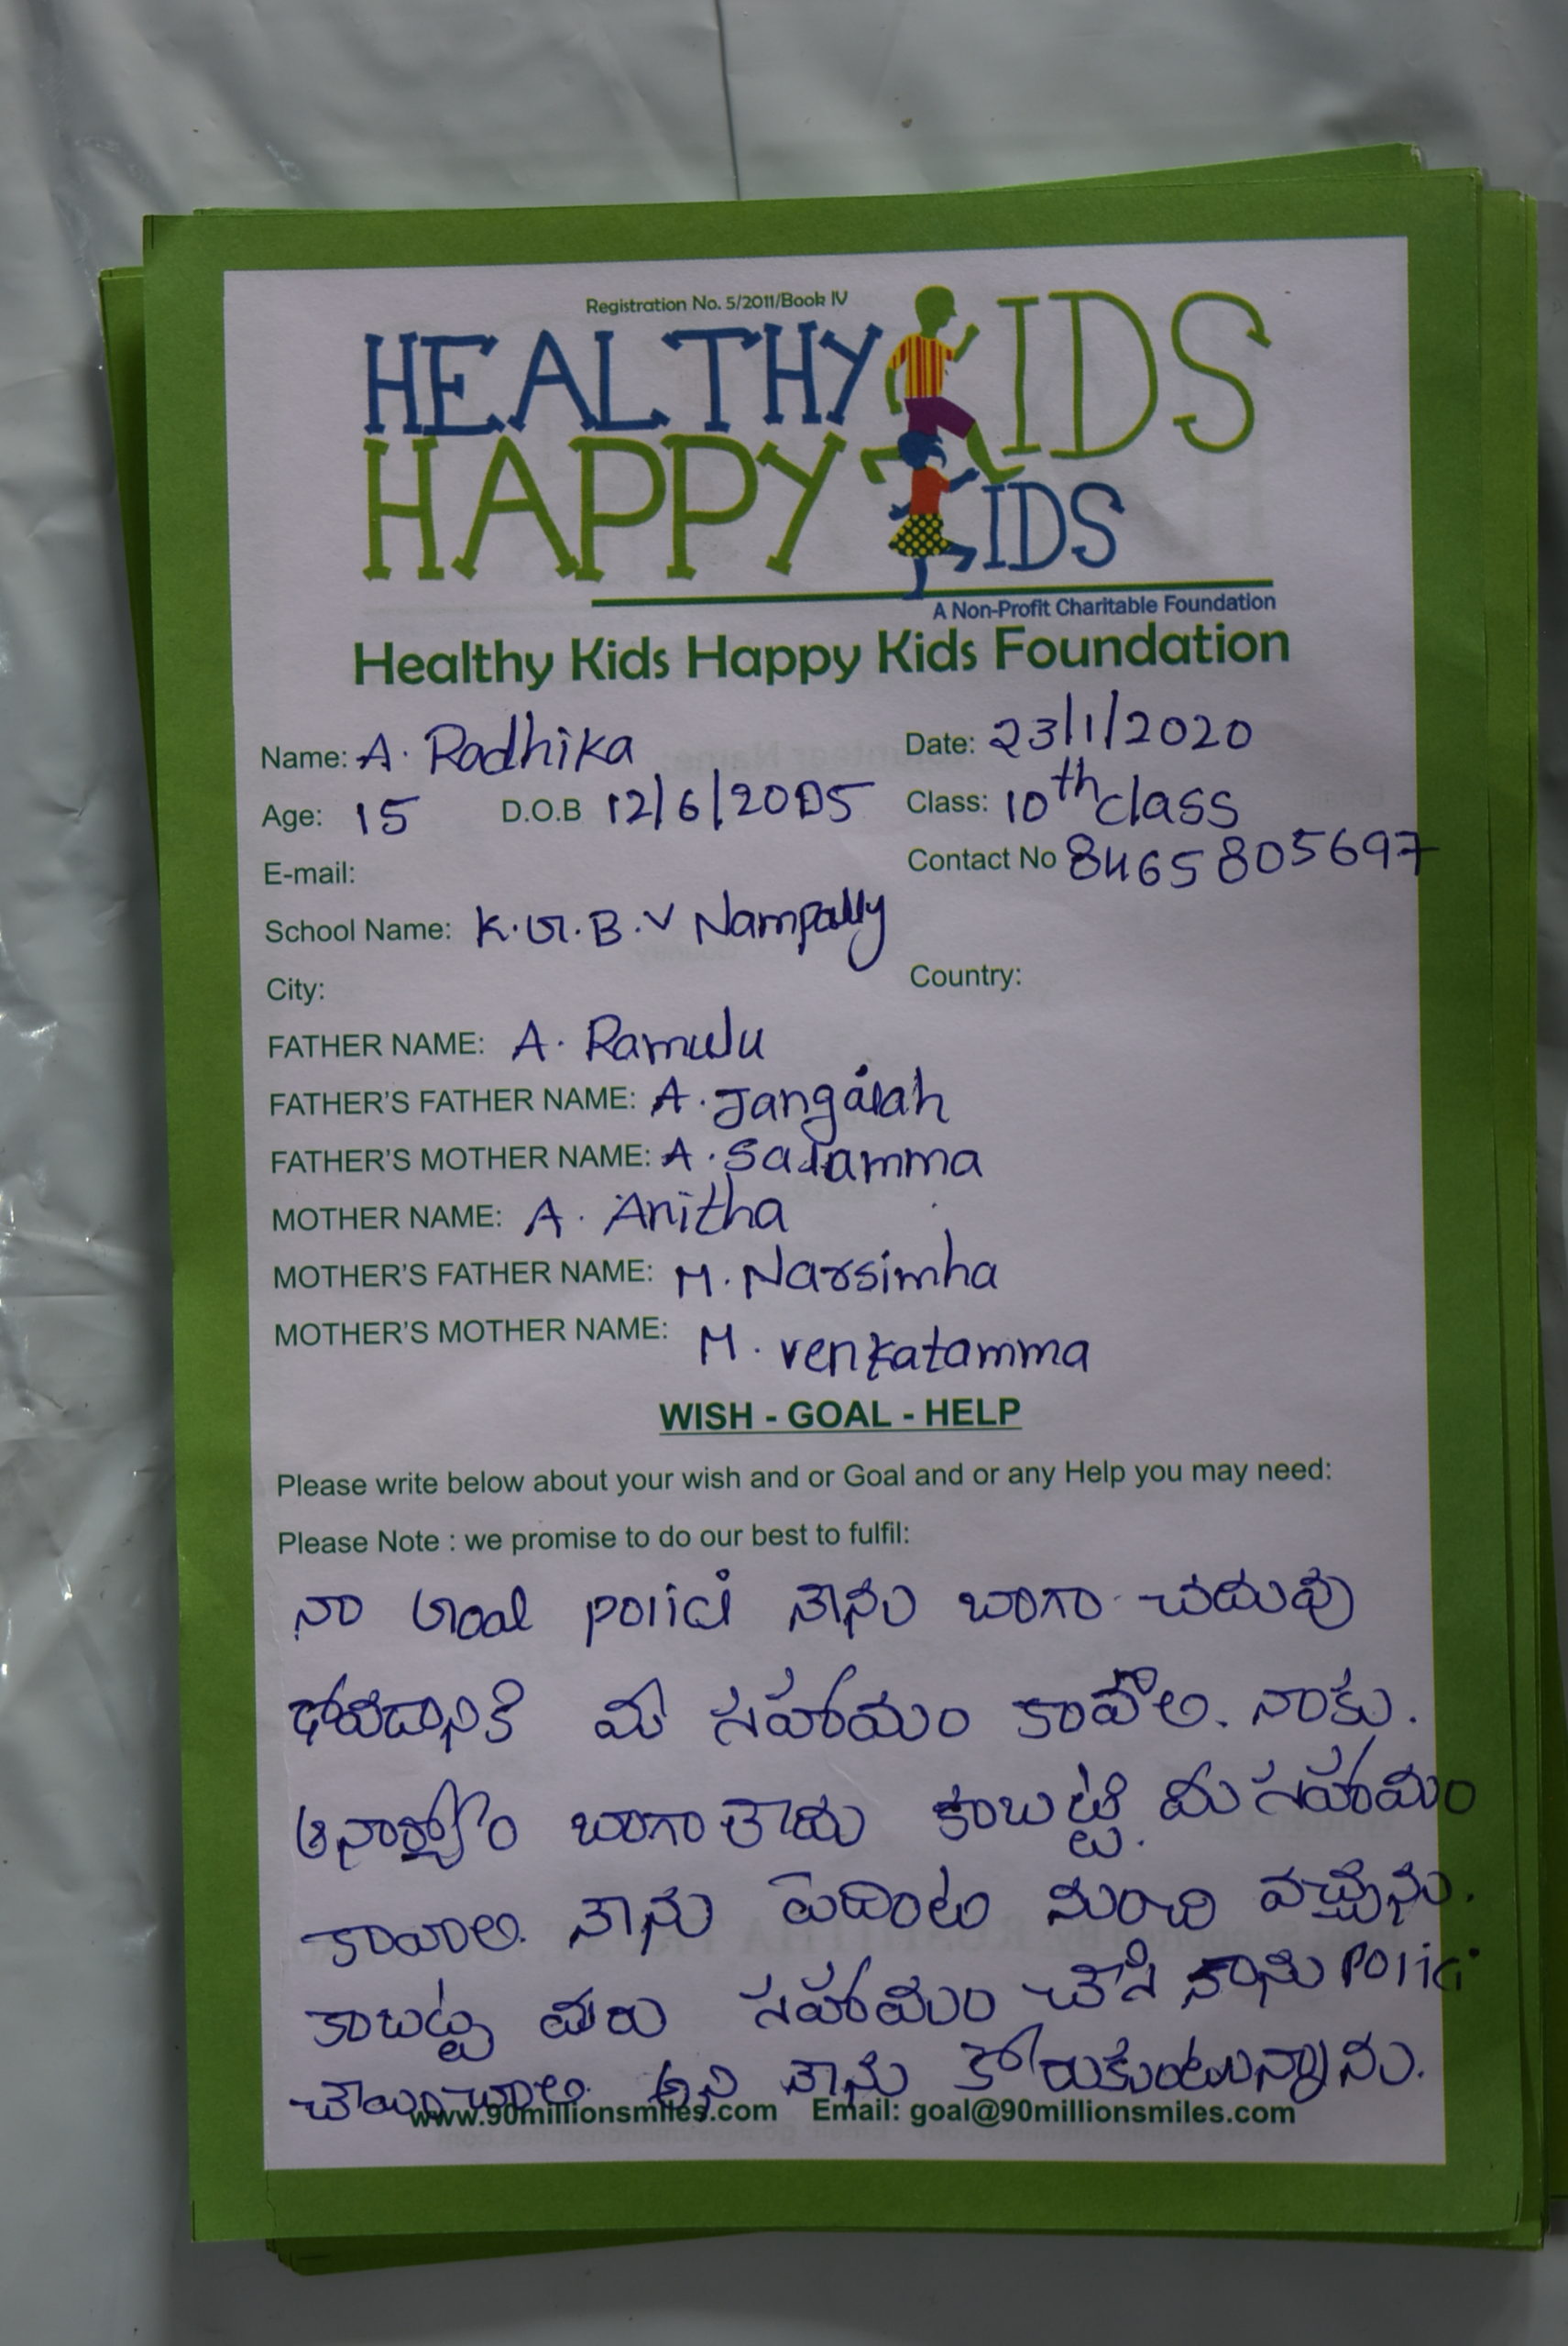 Registration No. 5/2011/Book IV
HEALTHY KIDS
HAPPY KIDS
A Non-Profit Charitable Foundation
Healthy Kids Happy Kids Foundation
Name: A. Radhika Date: 23/1/2020
Age: 15 D.O.B 12/6/2005 Class: 10th class
E-mail: Contact No 8465805697
School Name: K.G.B.V Nampally
City: Country:
FATHER NAME: A. Ramulu
FATHER'S FATHER NAME: A. Jangaiah
FATHER'S MOTHER NAME: A.
MOTHER NAME: A. Anitha
MOTHER'S FATHER NAME: M. Narsimha
MOTHER'S MOTHER NAME: M. venkatamma
WISH - GOAL - HELP
Please write below about your wish and or Goal and or any Help you may need:
Please Note : we promise to do our best to fulfil:
నా Goal polici నాను బాగా చదువు
మీ సహాయం కావాల. నాకు.
బాగా లాదు కాబట్టి. మీ సహాయం
కావాల. నాను పెదింటి నుంచి వచ్చెను.
కాబట్టి మీరు సహాయం చేసి నాను polici
చెయించాల. అని నాను కోరుకుంటున్నాను.
www.90millionsmiles.com Email: goal@90millionsmiles.com